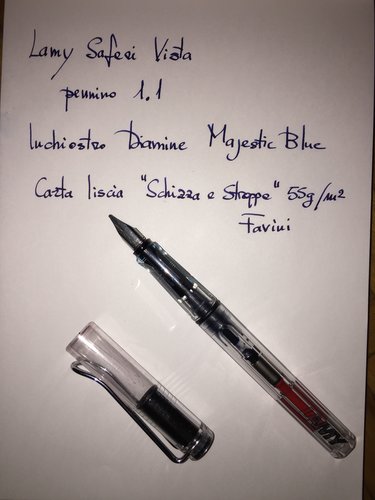 Lamy Safari Vista
pennino 1.1
Inchiostro Diamine Majestic Blue
Carta liscia "Schizza e Strappa" 55g/m²
Favini
LAMY